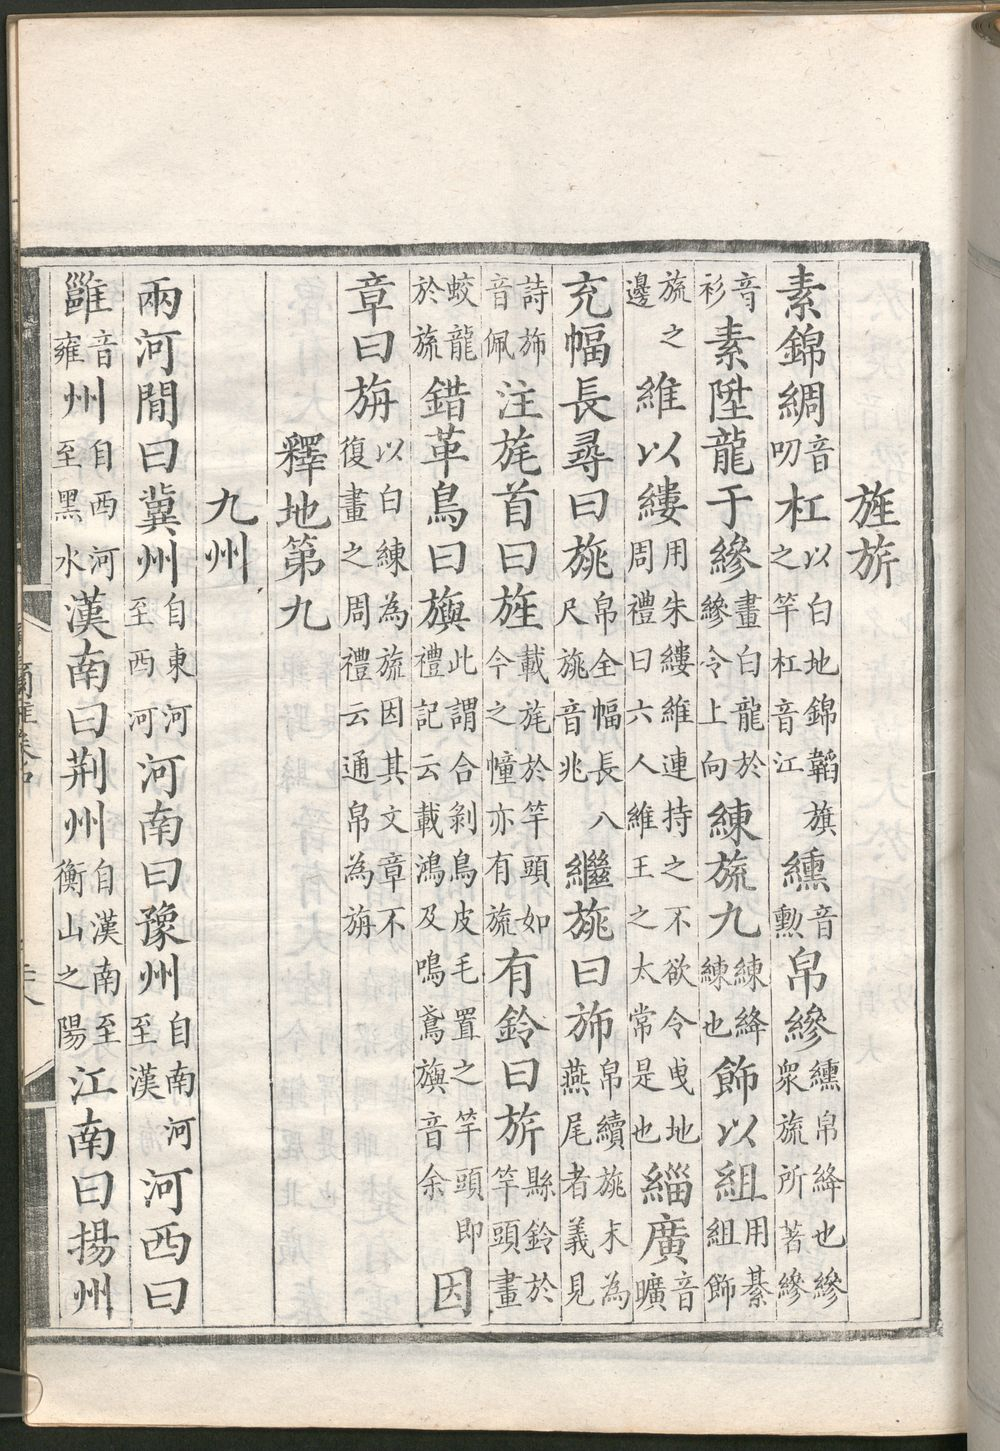 旌旂
素錦綢音叨杠以白地錦韜旗之竿杠音江纁音勳帛縿纁帛絳也縿衆旒所著縿
音衫素陞龍于縿畫白龍於縿令上向練旒九練絳練也飾以組用綦組飾
旒之邊維以縷用朱縷維連持之不欲令曳地周禮曰六人維王之太常是也緇廣音曠
充幅長尋曰旐帛全幅長八尺旐音兆繼旐曰斾帛續旐末為燕尾者義見
詩斾音佩注旄首曰旌載旄於竿頭如今之幢亦有旒有鈴曰旂縣鈴於竿頭畫
蛟龍於旒錯革鳥曰旟此謂合剥鳥皮毛置之竿頭即禮記云載鴻及鳴鳶旟音余因
章曰旃以白練為旒因其文章不復畫之周禮云通帛為旃
釋地第九
九州
兩河間曰冀州自東河至西河河南曰豫州自南河至漢河西曰
雝音雍州自西河至黑水漢南曰荆州自漢南至衡山之陽江南曰揚州